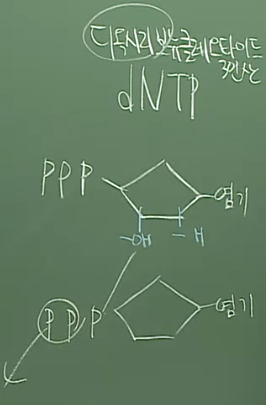 디옥시리보뉴클레오타이드
3인산
dNTP
PPP 염기
-OH - H
PP P 염기